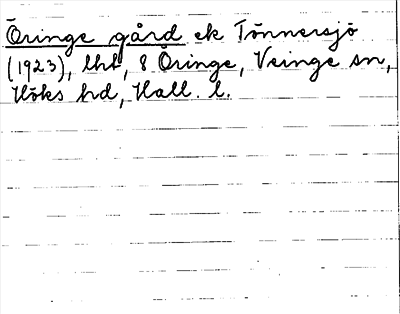 Öringe gård ek Tönnersjö
(1923), lht, 8 Öringe, Veinge sn,
Höks hd, Hall. l.